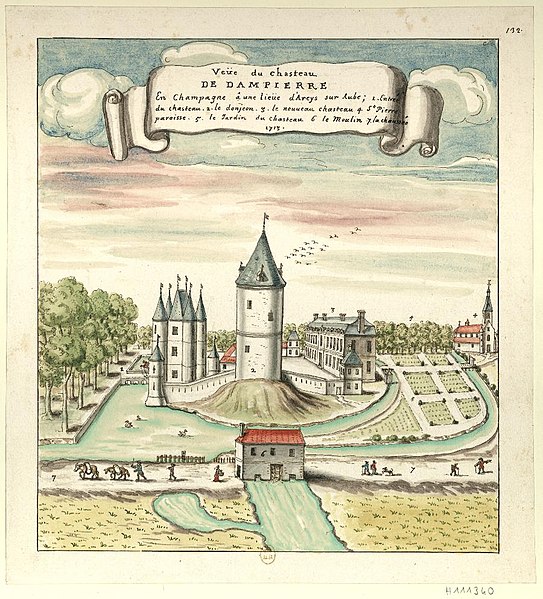 132.
Veüe du chasteau
DE DAMPIERRE
En Champagne à une lieüe d'Arcys sur Aube; 1. Entrée
du chasteau. 2. le donjeon. 3. le nouveau chasteau 4 St Pierre
paroisse. 5. le Jardin du chasteau 6 le Moulin 7 la chaussée
1713.
4
3
5
2
6
7
7
H111340